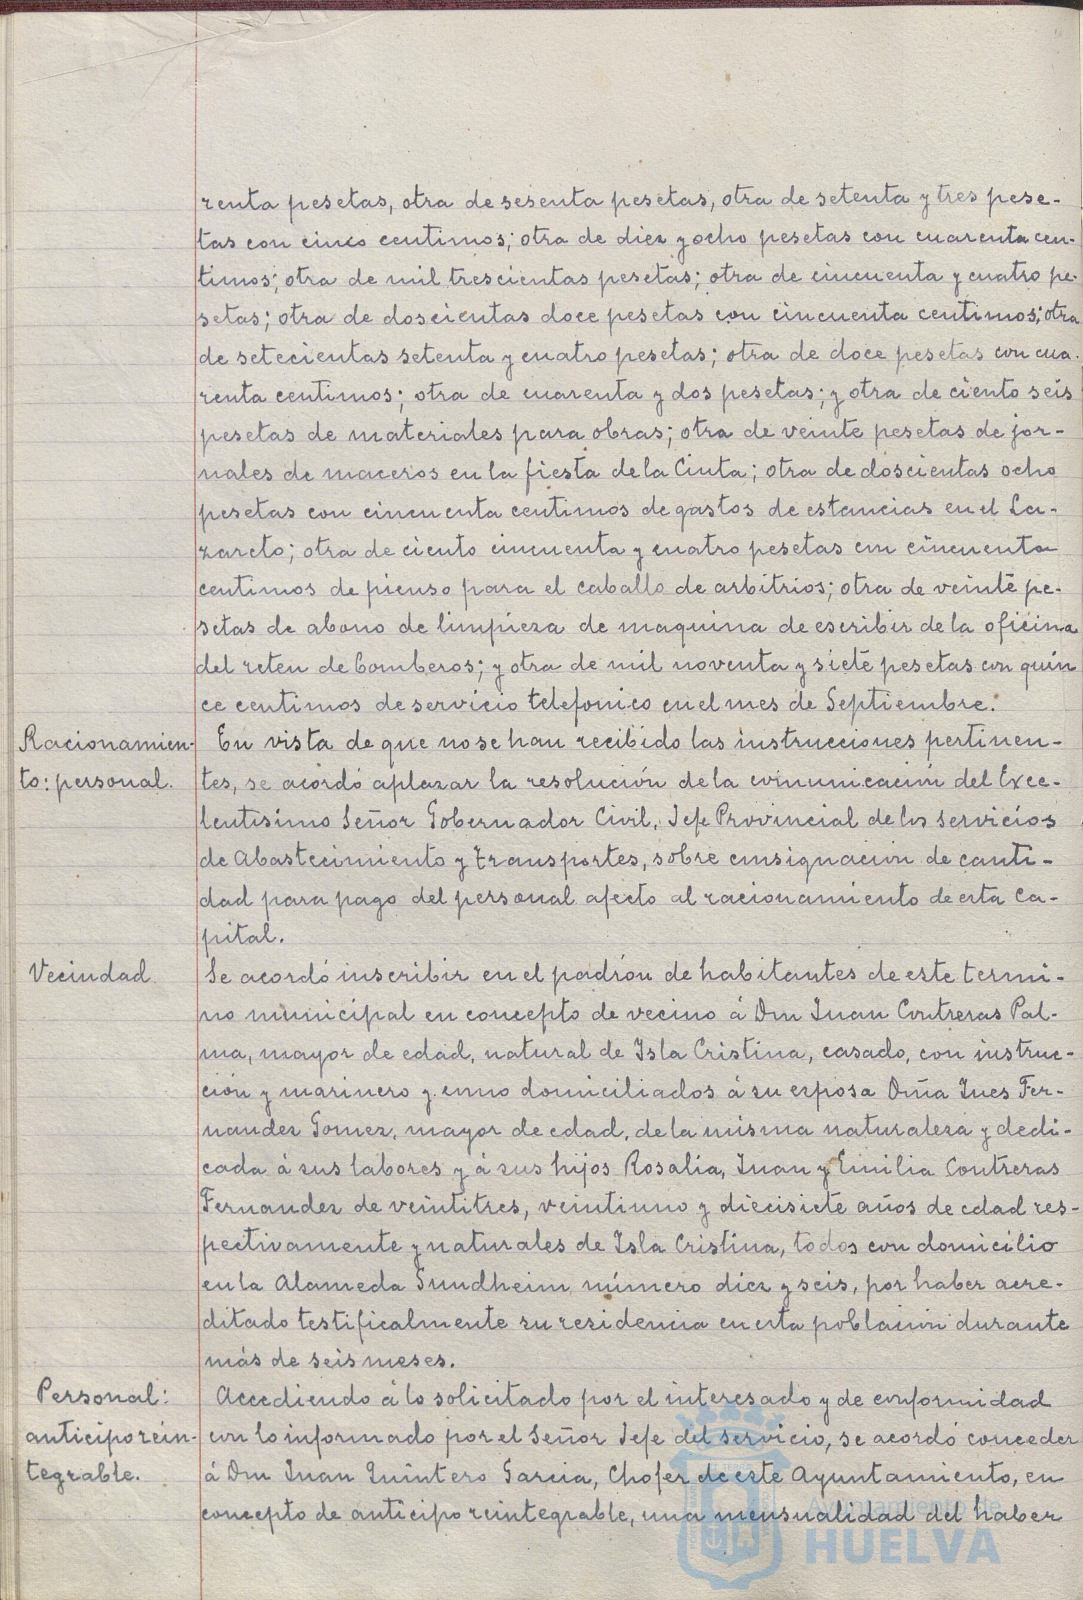 renta pesetas, otra de sesenta pesetas, otra de setenta y tres pese-
tas con cinco centimos; otra de diez y ocho pesetas con cuarenta cen-
timos; otra de mil trescientas pesetas; otra de cincuenta y cuatro pe-
setas; otra de doscientas doce pesetas con cincuenta centimos; otra
de setecientas setenta y cuatro pesetas; otra de doce pesetas con cua-
renta centimos; otra de cuarenta y dos pesetas; y otra de ciento seis
pesetas de materiales para obras; otra de veinte pesetas de jor-
nales de maceros en la fiesta de la Cinta; otra de doscientas ocho
pesetas con cincuenta centimos de gastos de estancias en el La-
zareto; otra de ciento cincuenta y cuatro pesetas con cincuenta
centimos de pienso para el caballo de arbitrios; otra de veinte pe-
setas de abono de limpieza de maquina de escribir de la oficina
del reten de bomberos; y otra de mil noventa y siete pesetas con quin
ce centimos de servicio telefonico en el mes de Septiembre.
Racionamien-
to: personal.
En vista de que no se han recibido las instrucciones pertinen-
tes, se acordó aplazar la resolución de la comunicación del Exce-
lentisimo Señor Gobernador Civil, Jefe Provincial de los servicios
de Abastecimiento y transportes, sobre consignación de canti-
dad para pago del personal afecto al racionamiento de esta Ca-
pital.
Vecindad
Se acordó inscribir en el padrón de habitantes de este termi-
no municipal en concepto de vecino á Don Juan Contreras Pal-
ma, mayor de edad, natural de Isla Cristina, casado, con instruc-
ción y marinero y como domiciliados á su esposa Dña Ines Fer-
nandez Gomez, mayor de edad, de la misma naturaleza y dedi-
cada á sus labores y á sus hijos Rosalia, Juan y Emilia Contreras
Fernandez de veintitres, veintiuno y diecisiete años de edad res-
pectivamente y naturales de Isla Cristina, todos con domicilio
en la Alameda Sundheim número diez y seis, por haber acre-
ditado testificalmente su residencia en esta población durante
más de seis meses.
Personal:
anticipo rein-
tegrable.
Accediendo á lo solicitado por el interesado y de conformidad
con lo informado por el Señor Jefe del servicio, se acordó conceder
á Don Juan Quintero Garcia, Chofer de este Ayuntamiento, en
concepto de anticipo reintegrable, una mensualidad del haber
Ayuntamiento de
HUELVA